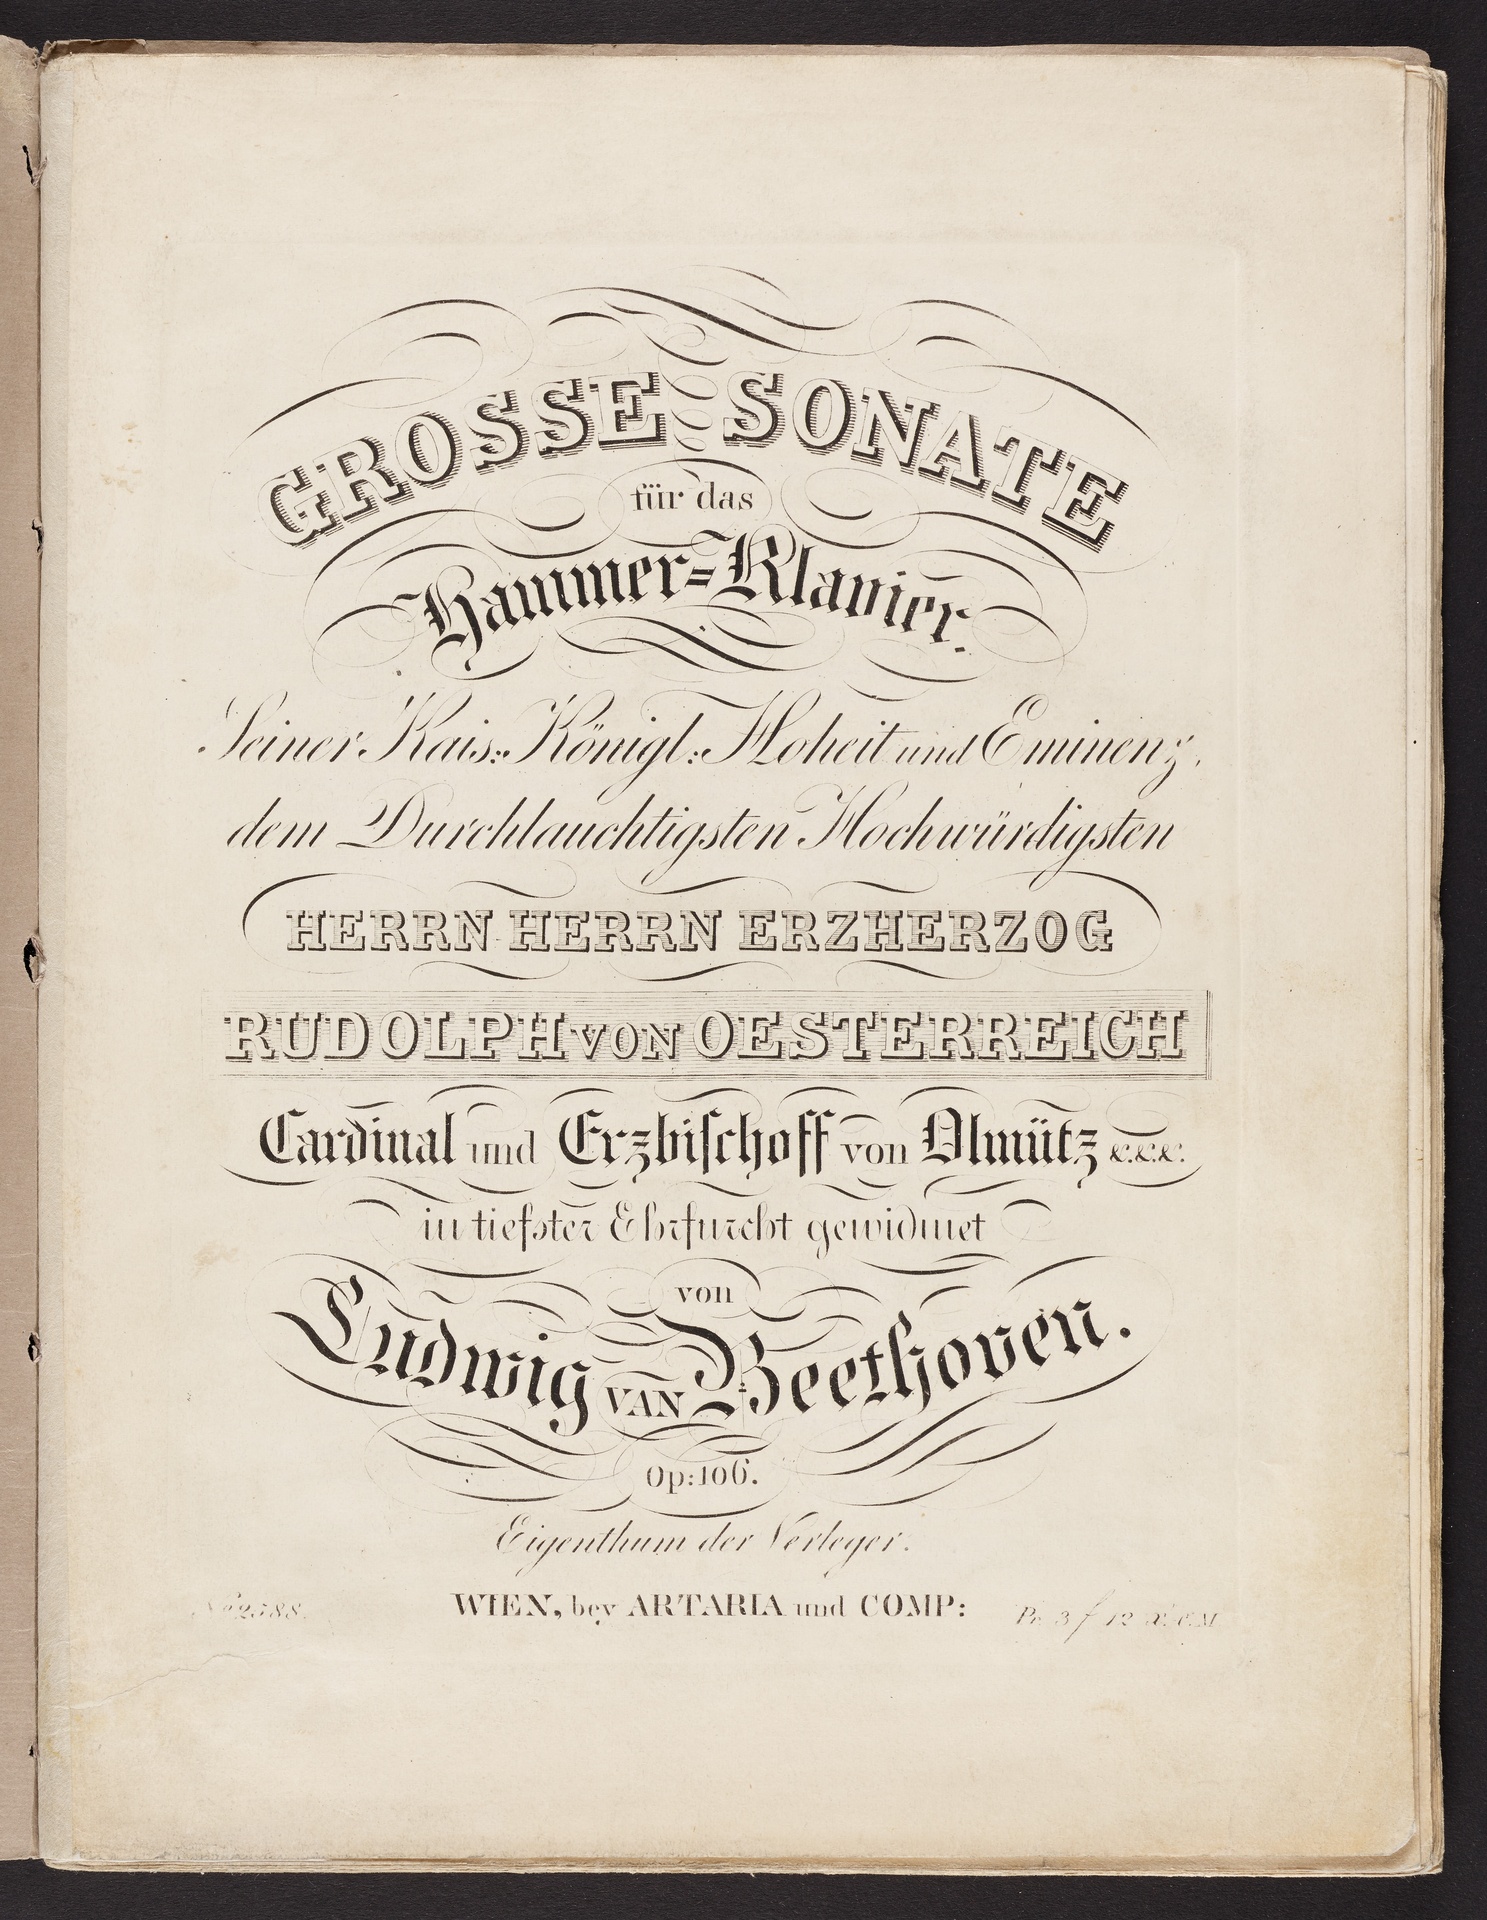 GROSSE SONATE
für das
Hammer=Klavier.
Seiner Kais: Königl: Hoheit und Eminenz,
dem Durchlauchtigsten Hochwürdigsten
HERRN HERRN ERZHERZOG
RUDOLPH VON OESTERREICH
Cardinal und Erzbischoff von Olmütz &.&.&.
in tiefster Ehrfurcht gewidmet
von
Ludwig VAN Beethoven.
Op:106.
Eigenthum der Verleger.
WIEN, bey ARTARIA und COMP:
No 2588.
Pr. 3 f 12 x C.M